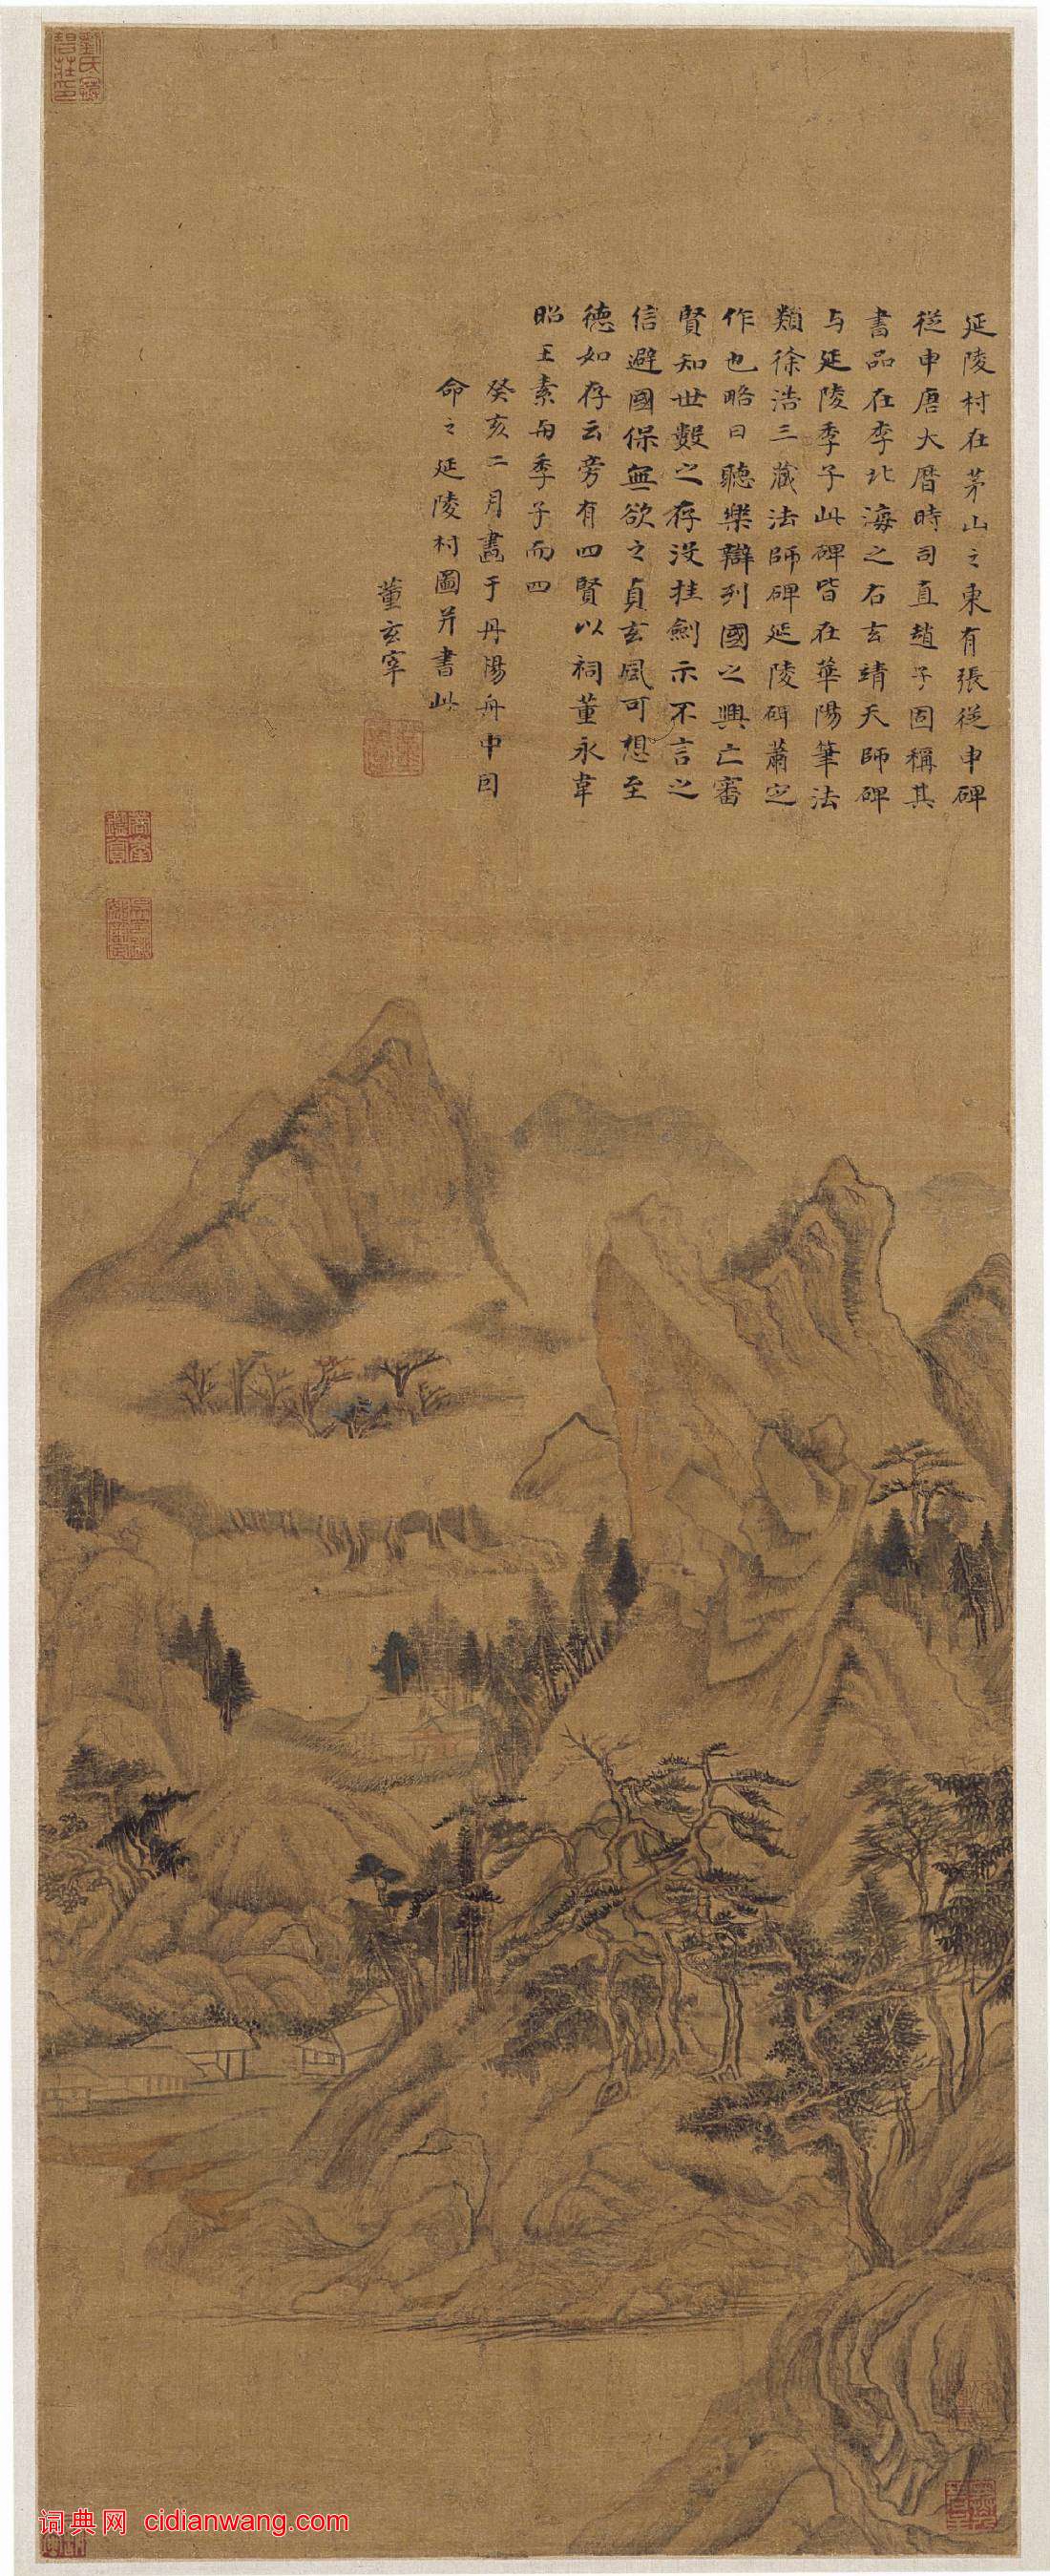 延陵村在茅山之東有張從申碑
從申唐大曆時司直趙子固稱其
書品在李北海之右玄靖天師碑
与延陵季子此碑皆在華陽筆法
類徐浩三藏法師碑延陵碑蕭定
作也略曰聽樂辯列國之興亡審
賢知世數之存没挂劍示不言之
信避國保無欲之貞玄風可想至
德如存云旁有四賢以祠董永韋
昭王素与季子而四
癸亥二月畫于丹陽舟中因
命之延陵村圖并書此
董玄宰
词典网 cidianwang.com